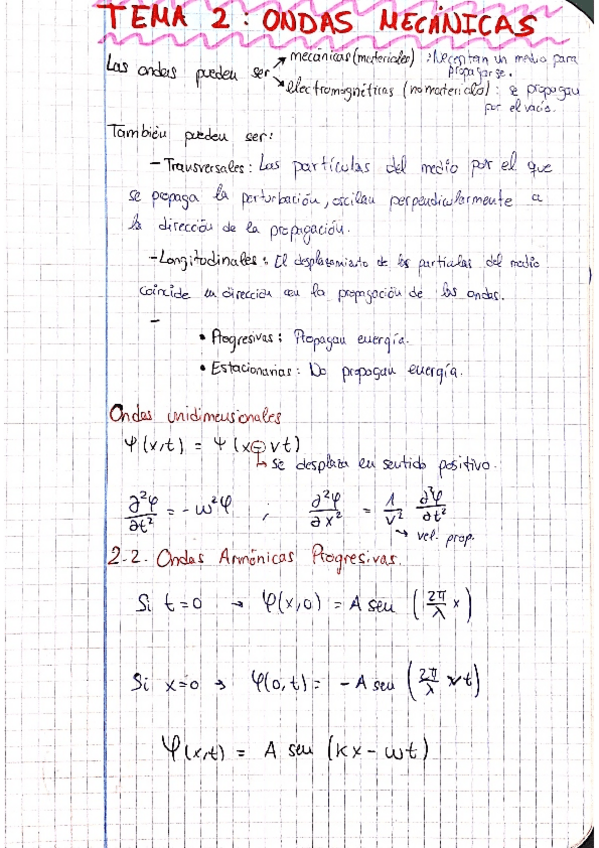 TEMA 2: ONDAS MECÁNICAS
Las ondas pueden ser → mecánicas (materiales): Necesitan un medio para propagarse.
→ electromagnéticas (no materiales): se propagan por el vacío.
También pueden ser:
- Transversales: Las partículas del medio por el que
se propaga la perturbación, oscilan perpendicularmente a
la dirección de la propagación.
- Longitudinales: El desplazamiento de las partículas del medio
coincide en dirección con la propagación de las ondas.
-
• Progresivas: Propagan energía.
• Estacionarias: No propagan energía.
Ondas unidimensionales
Ψ(x,t) = Ψ(x⊖vt)
↳ se desplaza en sentido positivo.
∂²Ψ/∂t² = -ω²Ψ ; ∂²Ψ/∂x² = 1/v² ∂²Ψ/∂t²
→ vel. prop.
2.2. Ondas Armónicas Progresivas.
Si t=0 → Ψ(x,0) = A sen (2π/λ x)
Si x=0 → Ψ(0,t) = -A sen (2π/λ vt)
Ψ(x,t) = A sen (kx - ωt)